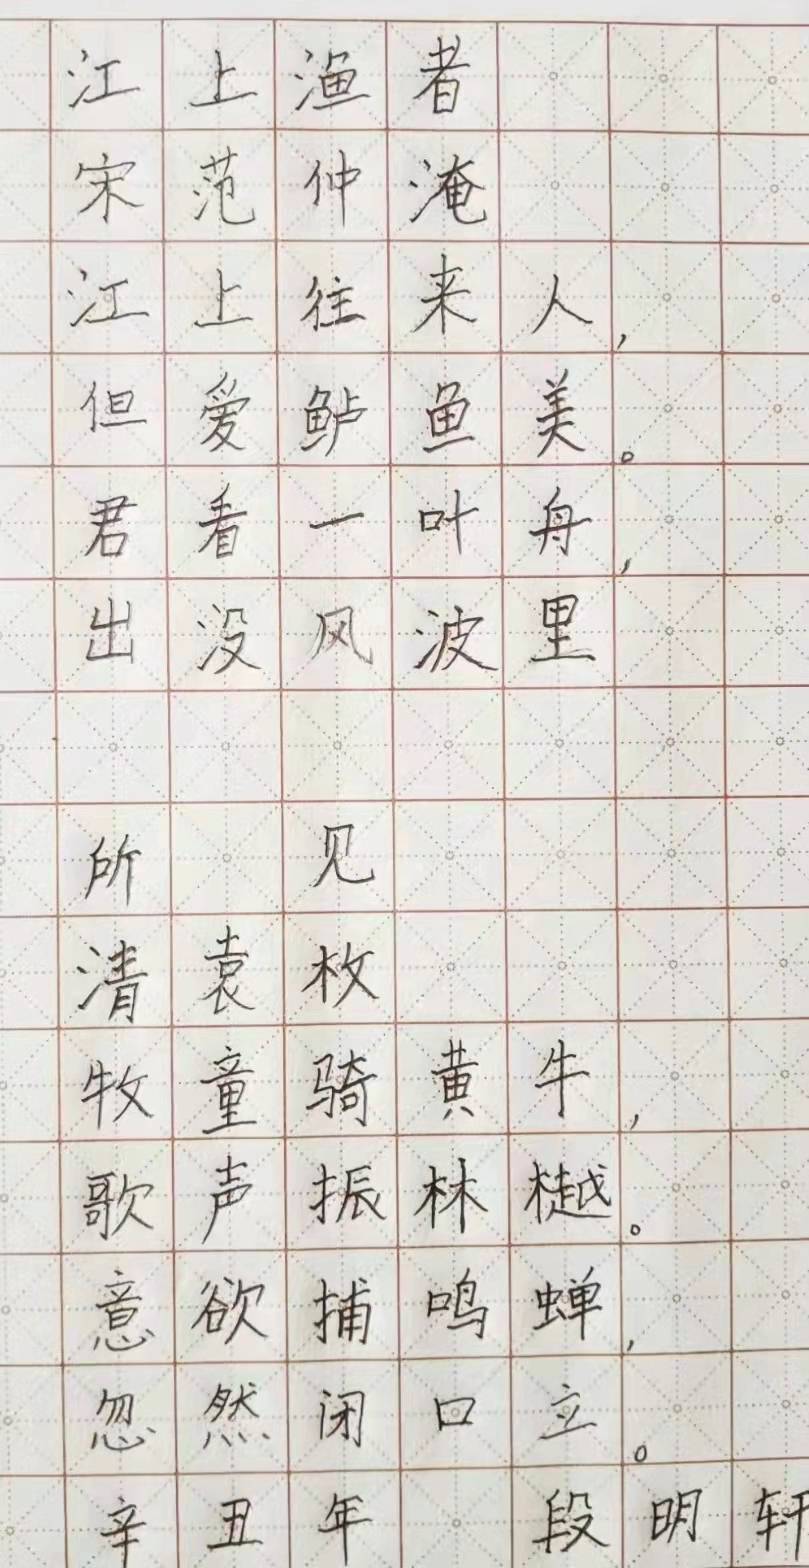 江上渔者
宋范仲淹
江上往来人，
但爱鲈鱼美。
君看一叶舟，
出没风波里
所 见
清袁枚
牧童骑黄牛，
歌声振林樾。
意欲捕鸣蝉，
忽然闭口立。
辛丑年 段明轩